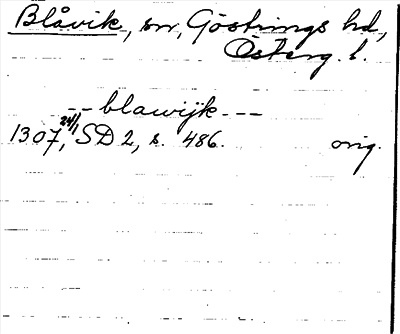 Blåvik, sn, Göstrings hd,
Österg. l.
-- blawijk ---
1307, 24/1 SD 2, s. 486. orig.